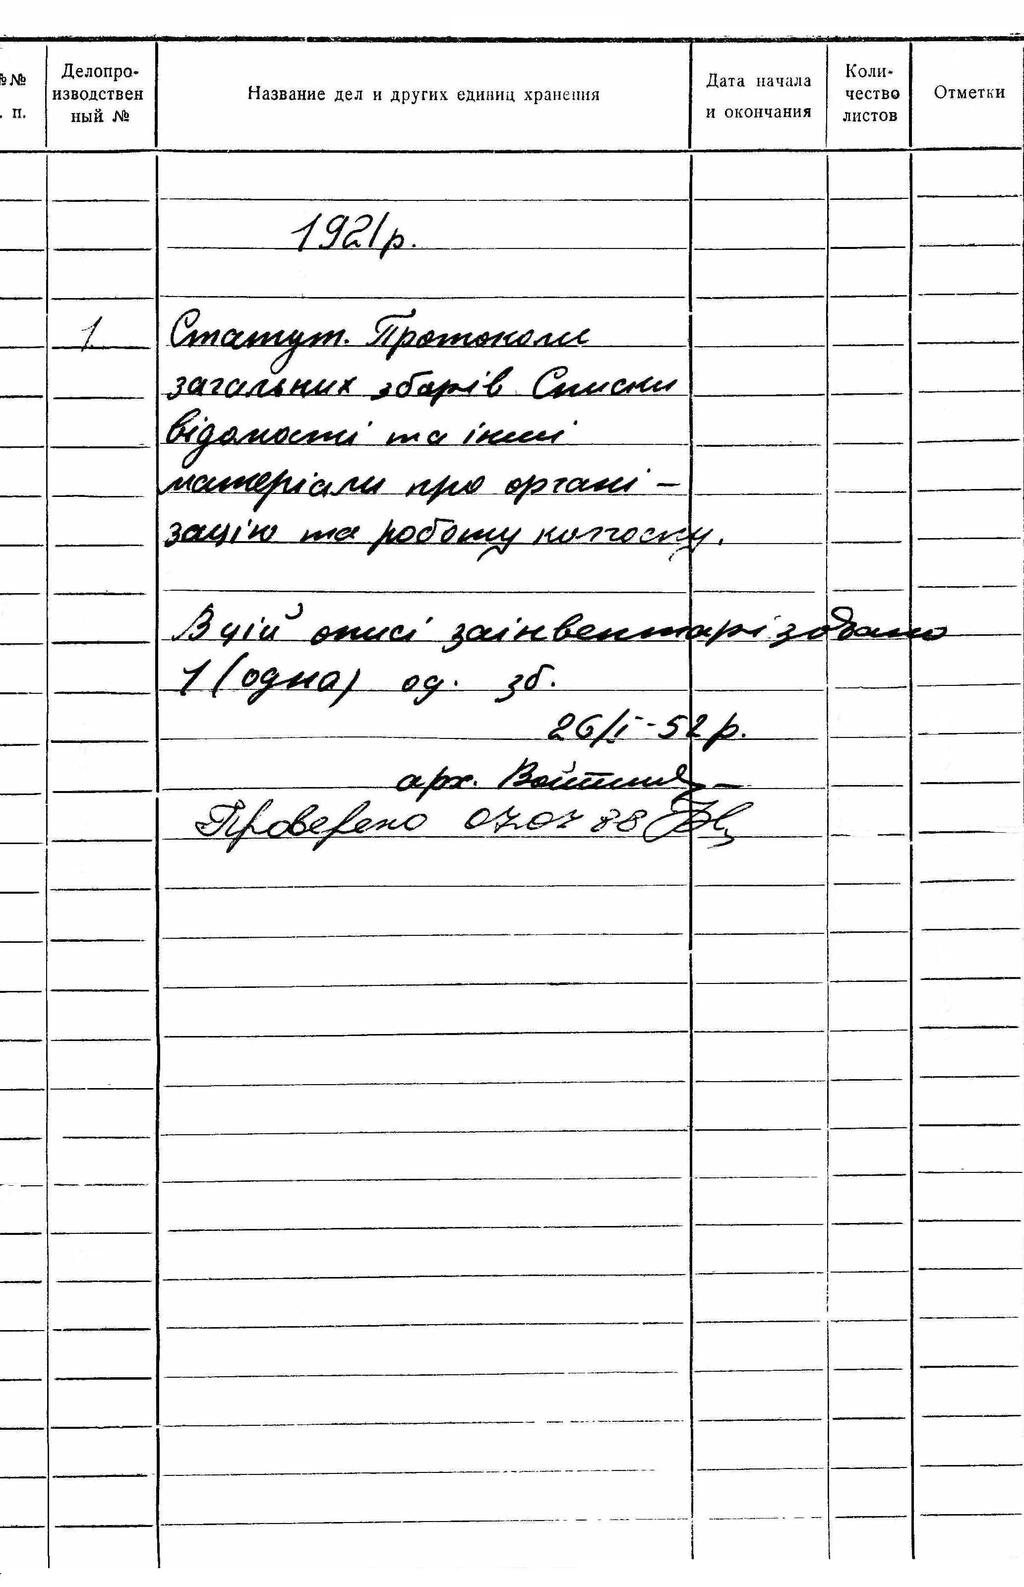 №№
. п.
Делопро-
изводствен
ный №
Название дел и других единиц хранения
Дата начала
и окончания
Коли-
чество
листов
Отметки
1921 р.
1.
Статут. Протоколи
загальних зборів. Списки
відомості та інші
матеріали про органі-
зацію та роботу колгоспу.
В цій описі заінвентарізовано
1 (одна) од. зб.
26/I-52 р.
арх.
Проверено 07 07 88